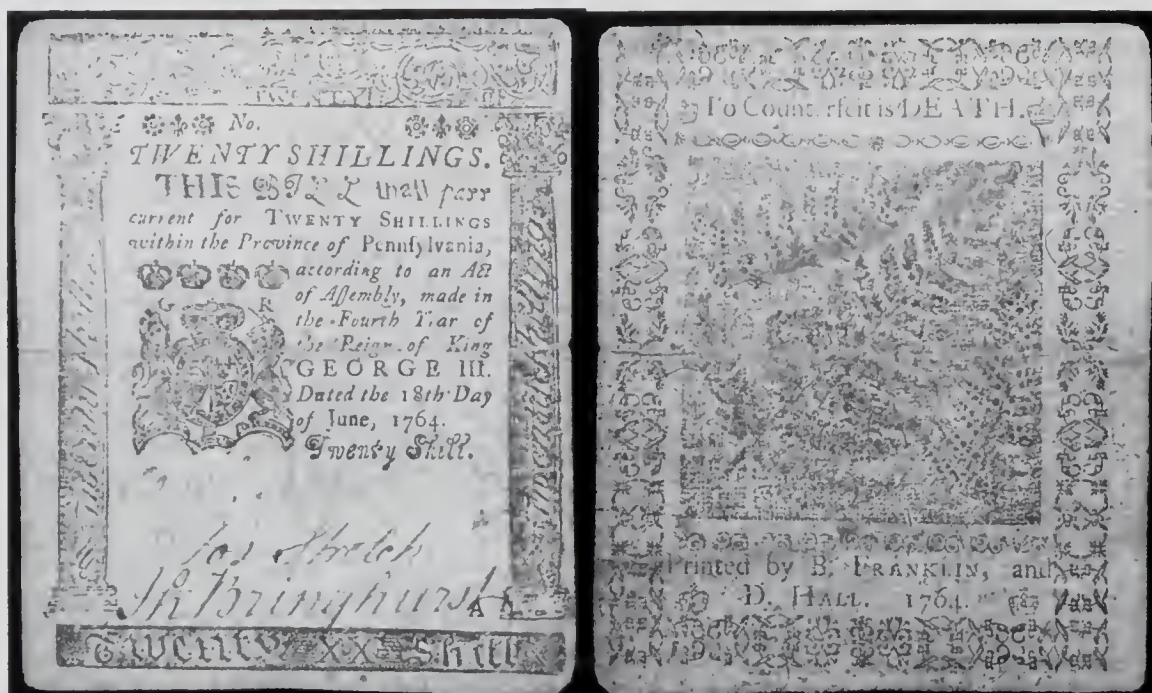 TWENTY
No.
TWENTY SHILLINGS.
THIS BILL ſhall paſs
current for TWENTY SHILLINGS
within the Province of Pennſylvania,
according to an Act
of Aſſembly, made in
the Fourth Year of
the Reign of King
GEORGE III.
Dated the 18th Day
of June, 1764.
Twenty Shill.
G R
Twenty Shill.
Twenty Shillings
Jos Stretch
Bringhurst
A
Twenty XX Shill
To Counterfeit is DEATH.
Printed by B. FRANKLIN, and
D. HALL. 1764.